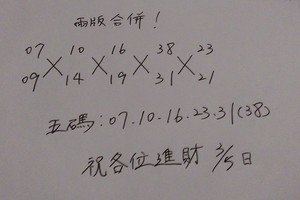 兩版合併!
07 10 16 38 23
09 14 19 31 21
五碼:07.10.16.23.31(38)
祝各位進財 3/5日